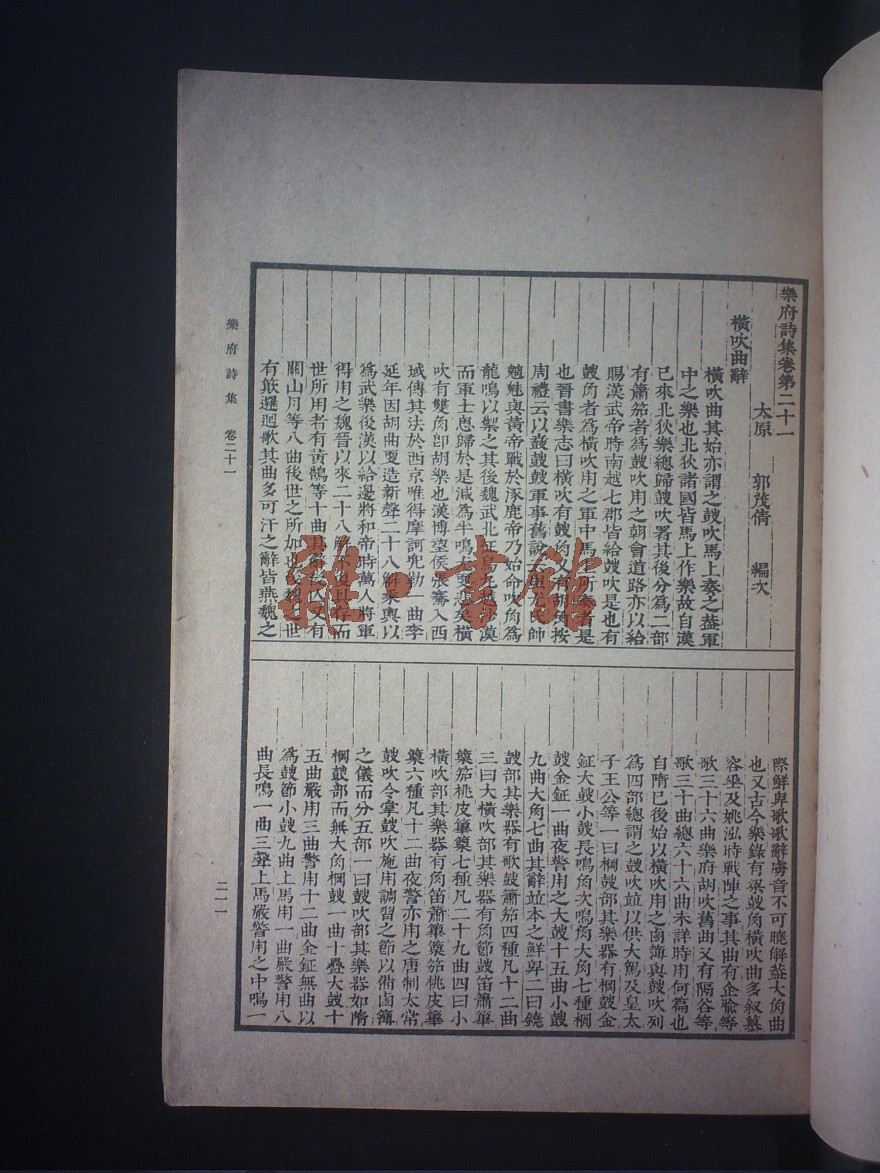 樂府詩集卷第二十一
太原 郭茂倩 編次
橫吹曲辭
橫吹曲其始亦謂之鼓吹馬上奏之蓋軍
中之樂也北狄諸國皆馬上作樂故自漢
已來北狄樂總歸鼓吹署其後分為二部
有簫笳者為鼓吹用之朝會道路亦以給
賜漢武帝時南越七郡皆給鼓吹是也有
鼓角者為橫吹用之軍中馬上所奏者是
也晉書樂志曰橫吹有鼓角又有胡角按
周禮云以鼖鼓鼓軍事舊說云蚩尤氏帥
魑魅與黃帝戰於涿鹿帝乃始命吹角為
龍鳴以禦之其後魏武北征烏丸越沙漠
而軍士思歸於是減為半鳴尤更悲矣橫
吹有雙角卽胡樂也漢博望侯張騫入西
域傳其法於西京唯得摩訶兜勒一曲李
延年因胡曲更造新聲二十八解乘輿以
為武樂後漢以給邊將和帝時萬人將軍
得用之魏晉以來二十八解不復具存而
世所用者有黃鵠等十曲其辭後亡又有
關山月等八曲後世之所加也後魏之世
有簸邏迴歌其曲多可汗之辭皆燕魏之
際鮮卑歌歌辭虜音不可曉解蓋大角曲
也又古今樂錄有梁鼓角橫吹曲多敘慕
容垂及姚泓時戰陣之事其曲有企喻等
歌三十六曲樂府胡吹舊曲又有隔谷等
歌三十曲總六十六曲未詳時用何篇也
自隋已後始以橫吹用之鹵簿與鼓吹列
為四部總謂之鼓吹竝以供大駕及皇太
子王公等一曰棡鼓部其樂器有棡鼓金
鉦大鼓小鼓長鳴角次鳴角大角七種棡
鼓金鉦一曲夜警用之大鼓十五曲小鼓
九曲大角七曲其辭竝本之鮮卑二曰鐃
鼓部其樂器有歌鼓簫笳四種凡十二曲
三曰大橫吹部其樂器有角節鼓笛簫篳
篥笳桃皮篳篥七種凡二十九曲四曰小
橫吹部其樂器有角笛簫篳篥笳桃皮篳
篥六種凡十二曲夜警亦用之唐制太常
鼓吹令掌鼓吹施用調習之節以備鹵簿
之儀而分五部一曰鼓吹部其樂器如隋
棡鼓部而無大角棡鼓一曲十疊大鼓十
五曲嚴用三曲警用十二曲金鉦無曲以
為鼓節小鼓九曲上馬用一曲嚴警用八
曲長鳴一曲三聲上馬嚴警用之中鳴一
樂府詩集 卷二十一
二一一
雜·書館